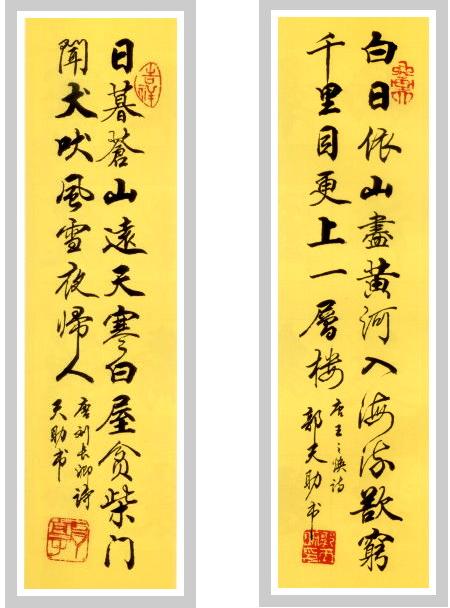 白日依山盡黃河入海流欲窮
千里目更上一層楼
唐王之渙詩
郭天助书
吉祥
日暮蒼山遠天寒白屋貧柴门
聞犬吠風雪夜歸人
唐刘長卿詩
天助书